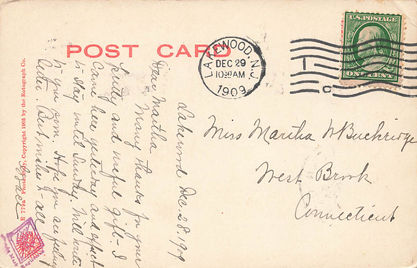 POST CARD
LAKEWOOD, N.J.
DEC 29
10 30 AM
1909
U.S. POSTAGE
ONE CENT
Lakewood Dec. 28, 1909
Dear Martha,
Many thanks for your
pretty and useful gift. I
came here yesterday and expect
to stay until Sunday. Will write
to you soon. Hope you are feeling
better. Best wishes to all.
Grace
Miss Martha W Buckridge
West Brook
Connecticut
Copyright 1905 by the Rotograph Co.